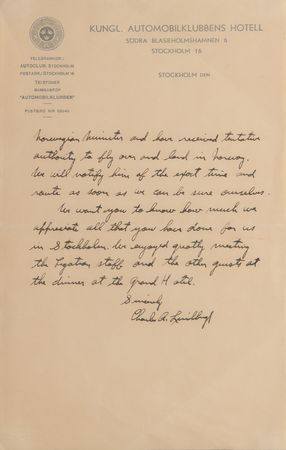 KUNGL. AUTOMOBILKLUBBENS HOTELL
SÖDRA BLASIEHOLMSHAMNEN 6
STOCKHOLM 16
TELEGRAMADR.:
AUTOCLUB, STOCKHOLM
POSTADR.: STOCKHOLM 16
TELEFONER
NAMNANROP
"AUTOMOBILKLUBBEN"
POSTGIRO NR
STOCKHOLM DEN
Norwegian Minister and have received tentative
authority to fly over and land in Norway.
We will notify him of the exact time and
route as soon as we can be sure ourselves.
We want you to know how much we
appreciate all that you have done for us
in Stockholm. We enjoyed greatly meeting
the Legation staff and the other guests at
the dinner at the Grand Hotel.
Sincerely
Charles A. Lindbergh